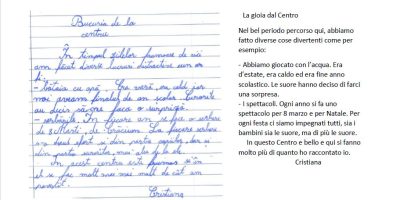 Bucuria de la
centru
În timpul zilelor frumoase de aici
am făcut diverse lucruri distractive cum ar
fi:
- bătaia cu apă. Era vară, era cald, iar
noi aveam finalul de an școlar. Surorile
au decis să ne facă o surpriză.
- serbările. În fiecare an se fac o serbare
de 8 Martie, de Crăciun. La fiecare serbare
s-a depus efort și din partea copiilor, dar și
din partea surorilor, mai ales de la ele.
În acest centru este frumos și în
el se fac mult mai mult decât am
povestit.
Cristiana
La gioia dal Centro
Nel bel periodo percorso qui, abbiamo
fatto diverse cose divertenti come per
esempio:
- Abbiamo giocato con l'acqua. Era
d'estate, era caldo ed era fine anno
scolastico. Le suore hanno deciso di farci
una sorpresa.
- I spettacoli. Ogni anno si fa uno
spettacolo per 8 marzo e per Natale. Per
ogni festa ci siamo impegnati tutti, sia i
bambini sia le suore, ma di più le suore.
In questo Centro è bello e qui si fanno
molto più di quanto ho raccontato io.
Cristiana